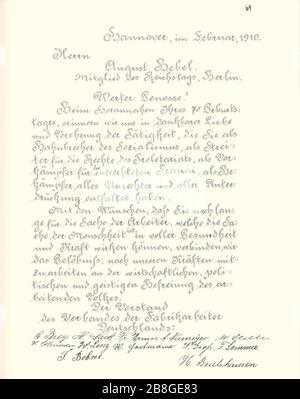 Hannover, im Februar, 1910.
Herrn
August Bebel.
Mitglied des Reichstags, Berlin.
Werter Genosse!
Beim Herannahen Ihres 70 Geburts-
tages, erinnern wir uns in dankbarer Liebe
und Verehrung der Tätigkeit, die Sie als
Bahnbrecher des Sozialismus, als Strei-
ter für die Rechte des Proletariats, als Vor-
kämpfer für entrechteten Frauen, als Be-
kämpfer alles Unrechtes und aller Unter-
drückung entfaltet haben.
Mit den Wünschen, daß Sie noch lan-
ge für die Sache der Arbeiter, welche die Sa-
che der Menschheit ist in voller Gesundheit
und Kraft wirken können, verbinden wir
das Gelöbniß, nach unseren Kräften mit-
zuarbeiten an der wirtschaftlichen, poli-
tischen und geistigen Befreiung des ar-
beitenden Volkes.
Der Vorstand
des Verbandes der Fabrikarbeiter
Deutschlands:
A. Brey
F. Sommer
alamy
Image ID: 2M8GFDG
www.alamy.com